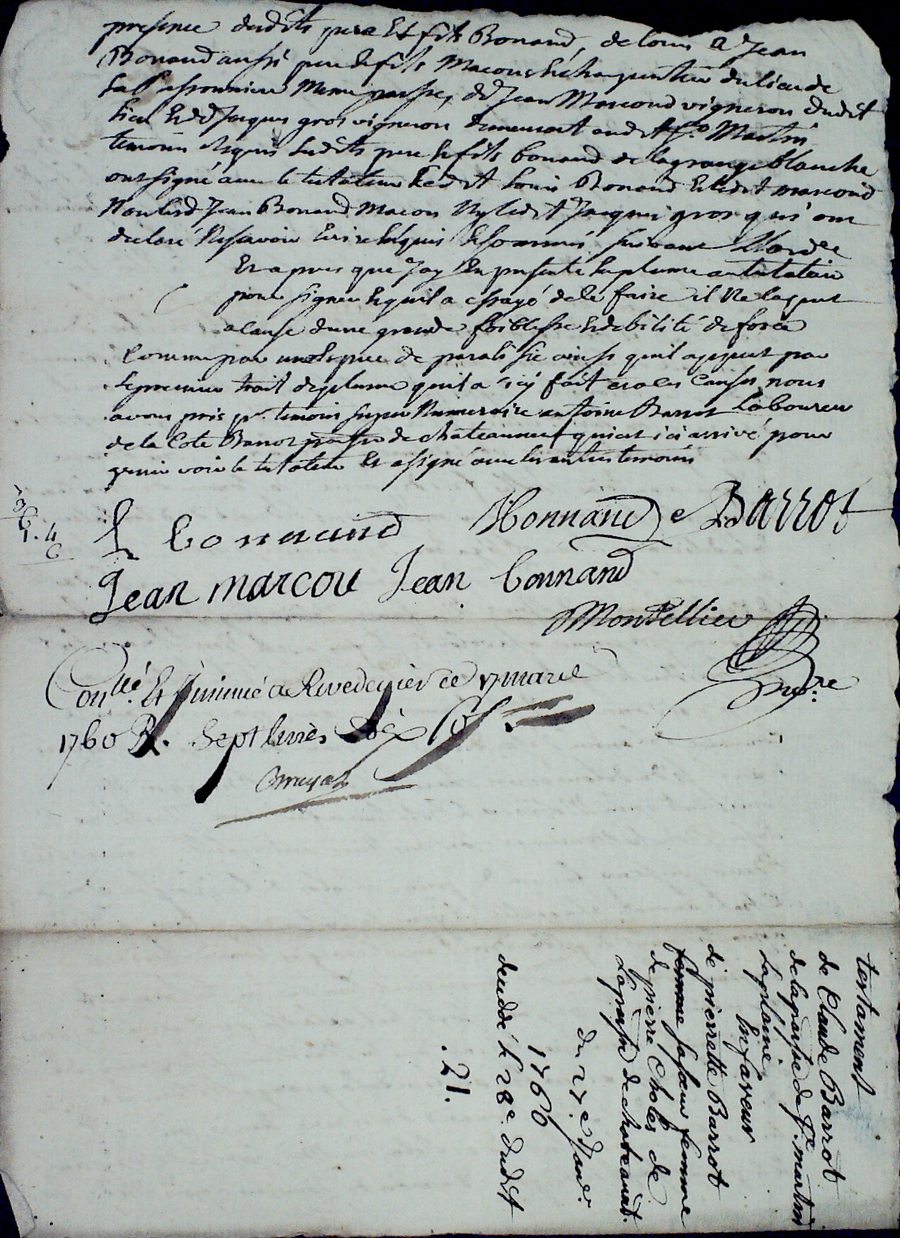 presence desdits pere et fils Bonand, de louis a Jean
Bonand aussi pere et fils Macons et charpentier du lieu de
la Bessonniere meme parsse, de Jean Marcoud vigneron dudit
lieu et de Jacques gros vigneron demeurant audit st Martin
temoins requis lesdits pere et fils bonand de lagrange blanche
ont signé avec le testateur ledit louis Bonand et ledit marcoud
Non ledit Jean Bonand Macon Ny ledit Jacques gros qui ont
declaré Ne scavoir Ecrire Enquis et sommés suivant
Et apres que Jay presenté la plume au testateur
pour signer et quil a essayé de le faire il Ne la peut
a cause dune grande foiblesse et debilité de force
Comme par une Espece de paralisie ainsi quil a paru par
le premier trait de plume quil a icy fait et a ces Causes nous
avons pris pr temoin super Numeraire antoine Barrot laboureur
de la Cote Barrot de chateauneuf qui est ici arrivé pour
venir voir le testateur Et a signé avec les autres temoins
L bonnand Bonnand Barrot
Jean marcou Jean bonnand
Montellier
Nore
Conllé Et insinué a Rivedegier ce 17 mars
1760 R. Sept livres dix sols
testament
de Claude Barrot
de la parsse de St martin
laplaine
En faveur
de pierrette Barrot
femme sa soeur femme
de pierre Cholet de
la parsse de chateauneuf
du 27e Janer
1766
decedé le 28e dudit
.21.